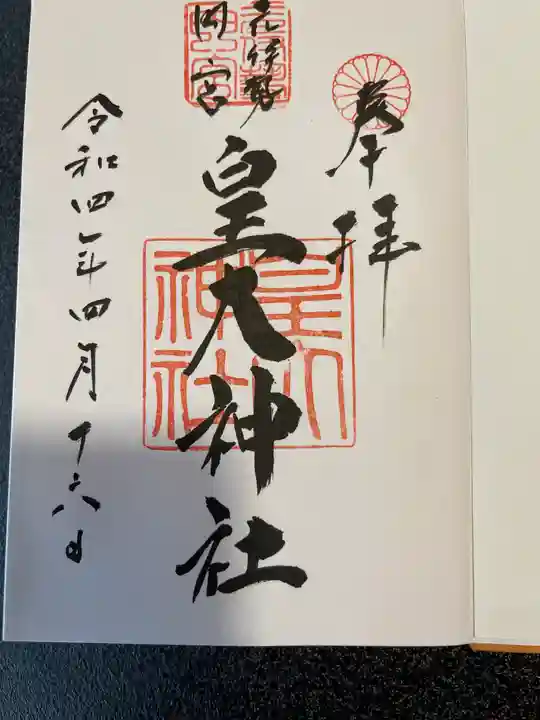 奉拝
元伊勢
内宮
皇大神社
皇大
神社
令和四年四月十六日